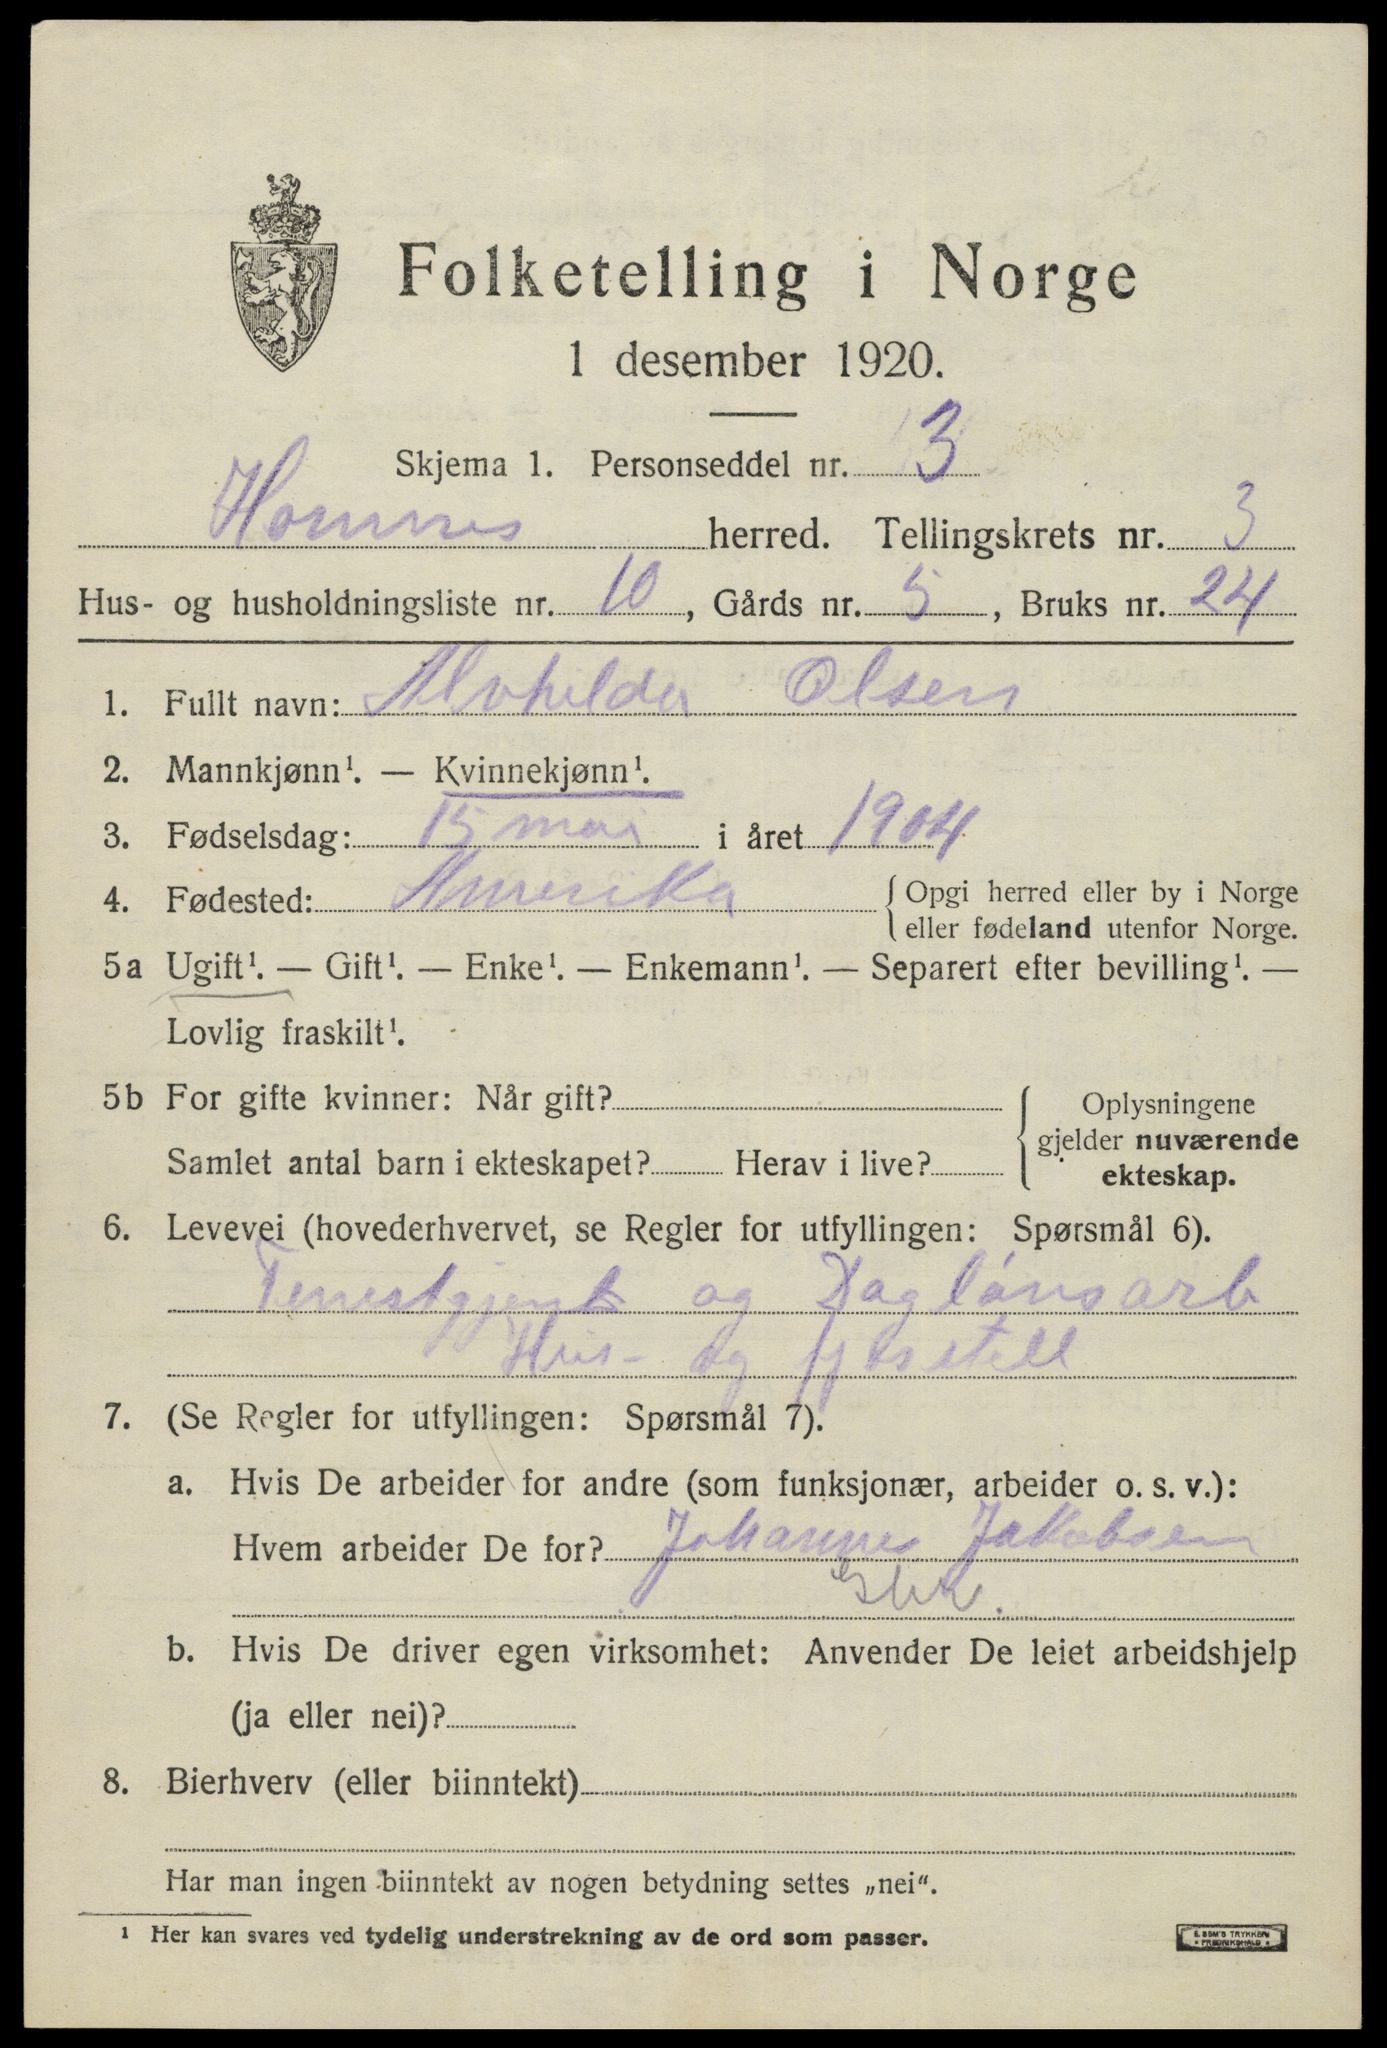 Folketelling i Norge
1 desember 1920.
Skjema 1. Personseddel nr. 3
Hornnes herred. Tellingskrets nr. 3
Hus- og husholdningsliste nr. 10, Gårds nr. 5, Bruks nr. 24
1. Fullt navn: Alvhilda Olsen
2. Mannkjønn¹. — Kvinnekjønn¹.
3. Fødselsdag: 15 mai i året 1904
4. Fødested: Amerika { Opgi herred eller by i Norge
eller fødeland utenfor Norge.
5a Ugift¹. — Gift¹. — Enke¹. — Enkemann¹. — Separert efter bevilling¹. —
Lovlig fraskilt¹.
5b For gifte kvinner: Når gift? { Oplysningene
gjelder nuværende
Samlet antal barn i ekteskapet? Herav i live?
ekteskap.
6. Levevei (hovederhvervet, se Regler for utfyllingen: Spørsmål 6).
Tenestgjent og Daglönsarb
Hus- og fjøsstell
7. (Se Regler for utfyllingen: Spørsmål 7).
a. Hvis De arbeider for andre (som funksjonær, arbeider o. s. v.):
Hvem arbeider De for? Johannes Jakobsen
Gbr.
b. Hvis De driver egen virksomhet: Anvender De leiet arbeidshjelp
(ja eller nei)?
8. Bierhverv (eller biinntekt)
Har man ingen biinntekt av nogen betydning settes „nei“.
¹ Her kan svares ved tydelig understrekning av de ord som passer.
E. SEM'S TRYKKERI
FREDRIKSHALD